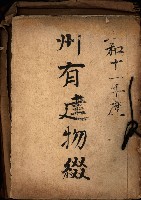 昭和十一年度
州有建物綴